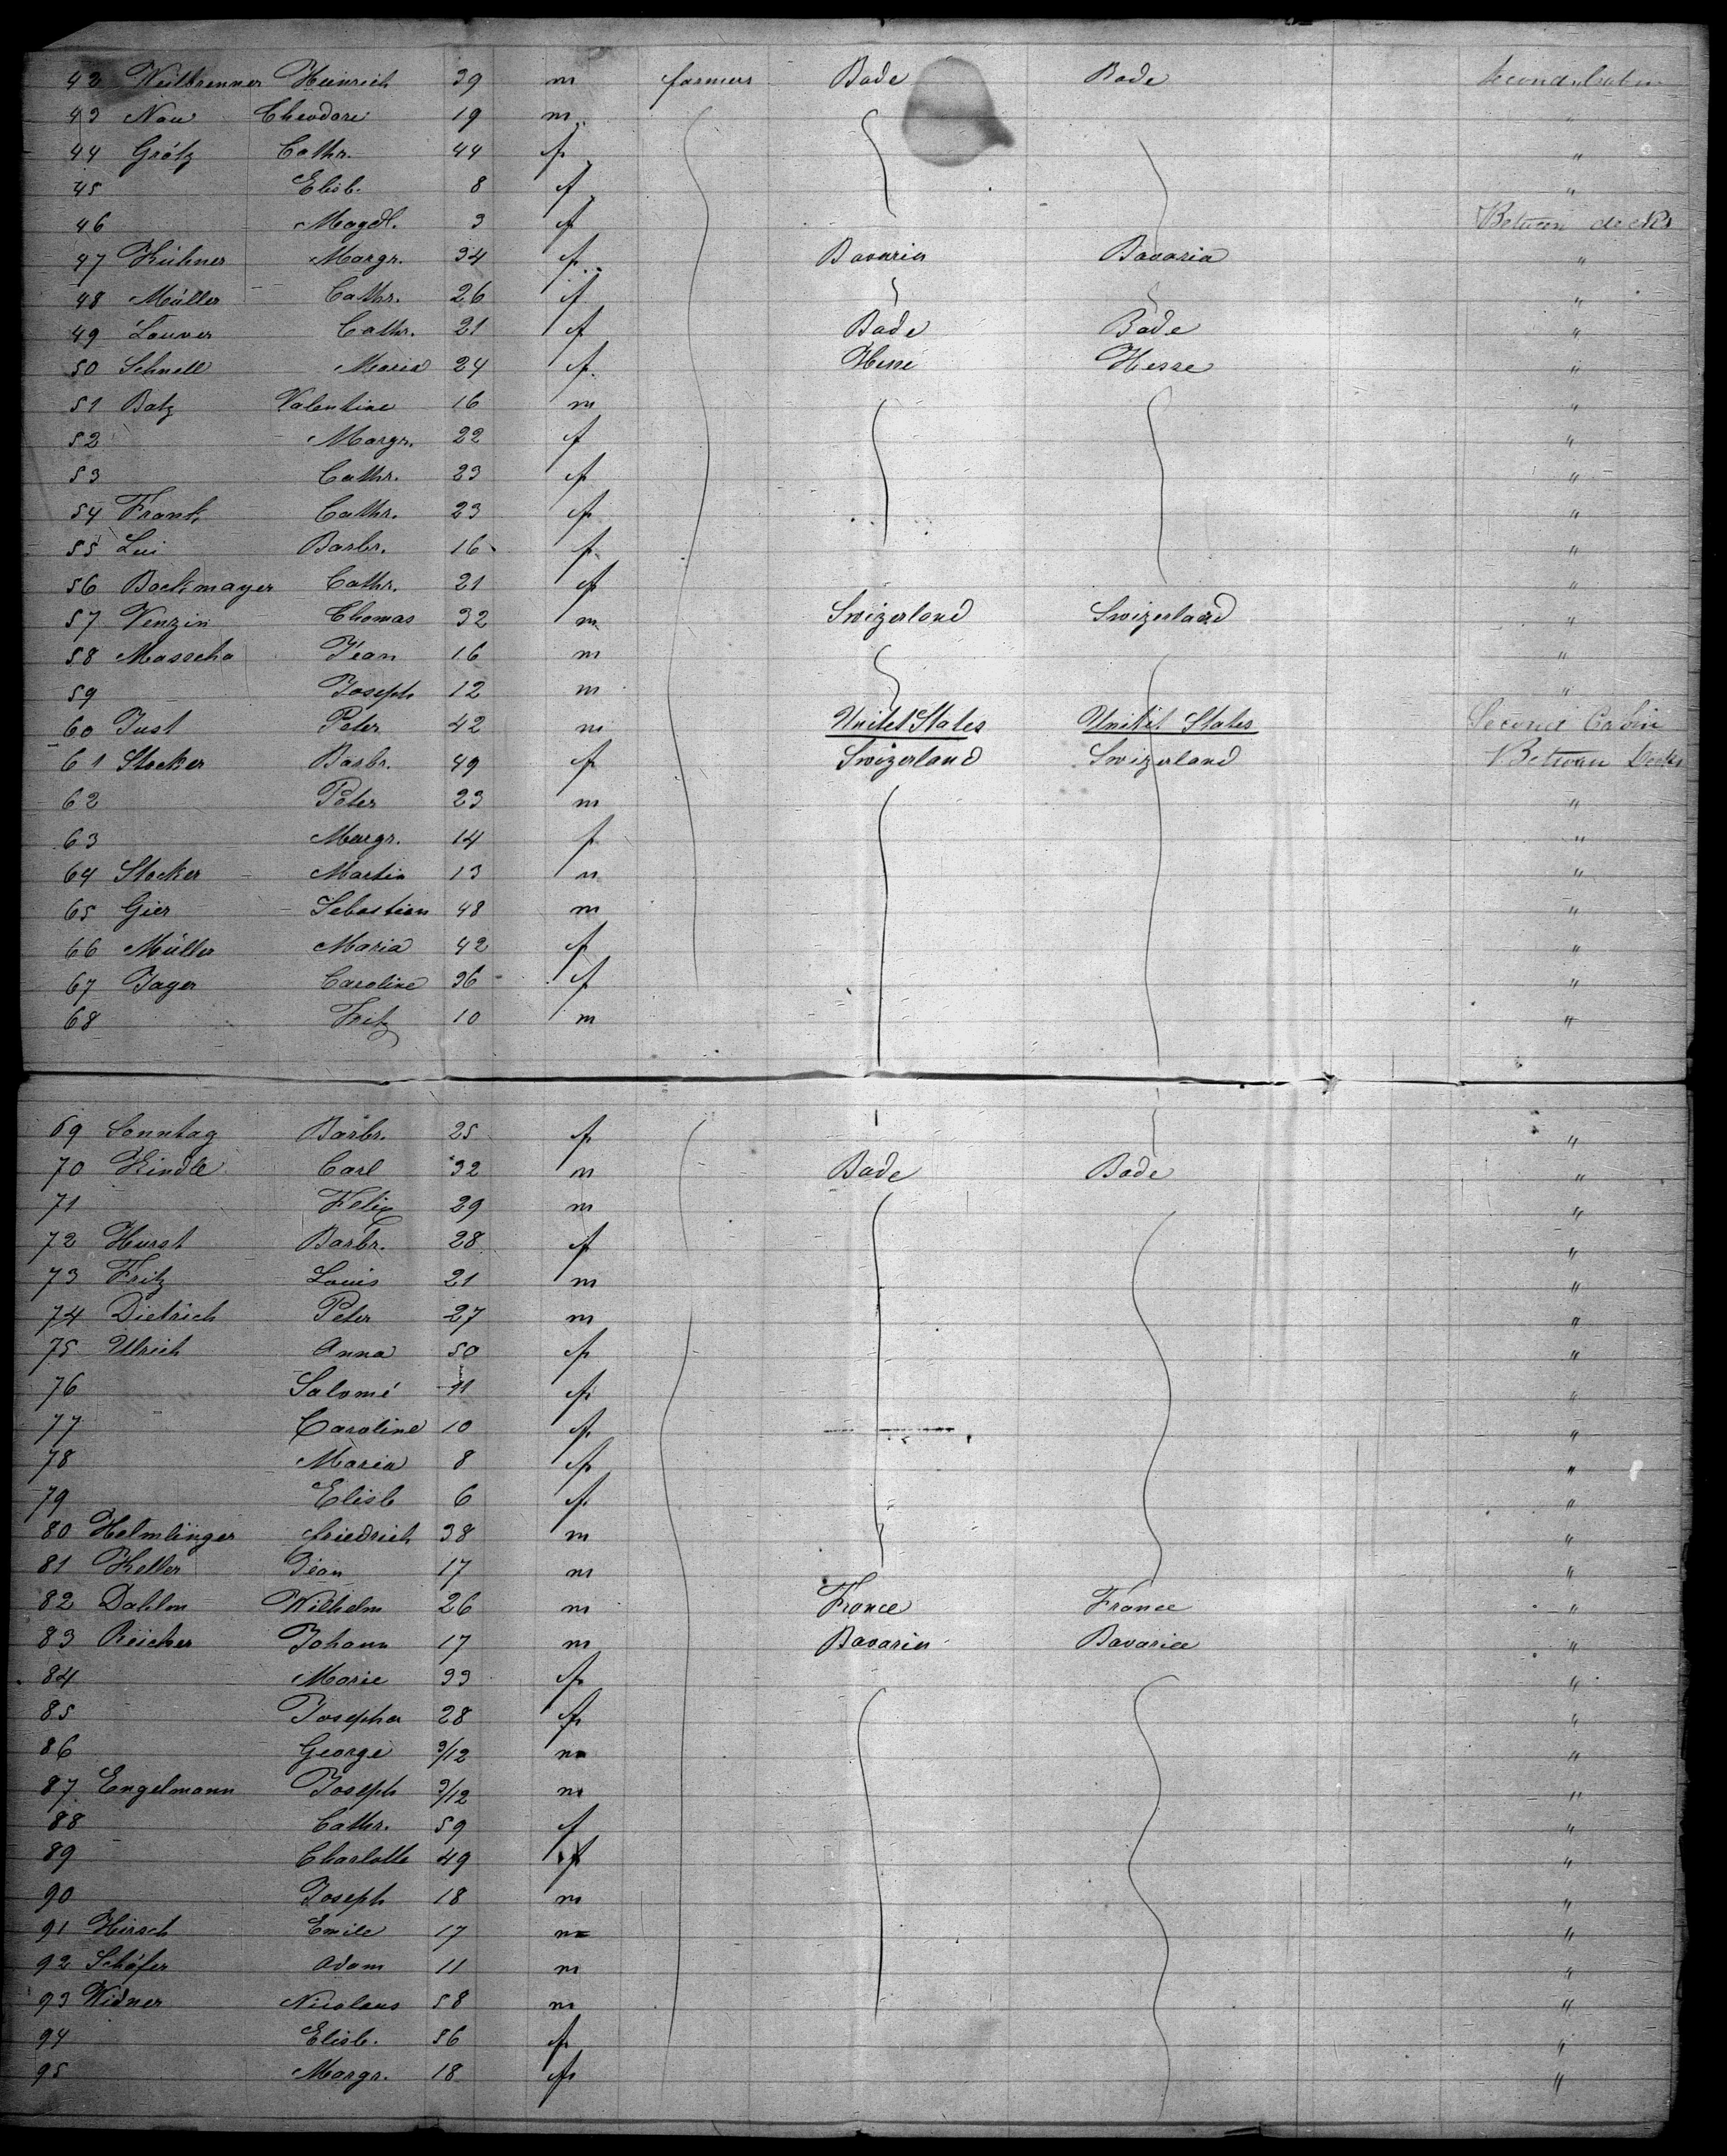 42 Weilbrenner Heinrich 39 m farmers Bade Bade Second Cabin
43 Nau Theodore 19 m "
44 Grötz Cathr. 44 f "
45 Elisb. 8 f "
46 Magdl. 3 f Between decks
47 Kühner Margr. 34 f Bavaria Bavaria "
48 Müller Cathr. 26 f "
49 Lauver Cathr. 21 f Bade Bade "
50 Schnell Maria 24 f Hesse Hesse "
51 Batz Valentine 16 m "
52 Margr. 22 f "
53 Cathr. 23 f "
54 Frank Cathr. 23 f "
55 Lui Barbr. 16 f "
56 Bockmayer Cathr. 21 f "
57 Venzin Thomas 32 m Swizerland Swizerland "
58 Masseha Jean 16 m "
59 Joseph 12 m "
60 Just Peter 42 m Unitet States Unitet States Second Cabin
61 Stocker Barbr. 49 f Swizerland Swizerland Between Decks
62 Peter 23 m "
63 Margr. 14 f "
64 Stocker Martin 13 m "
65 Gier Sebastian 48 m "
66 Müller Maria 42 f "
67 Jager Caroline 36 f "
68 Fritz 10 m "
69 Sonntag Barbr. 25 f "
70 Kindle Carl 32 m Bade Bade "
71 Felix 29 m "
72 Hurst Barbr. 28 f "
73 Fritz Louis 21 m "
74 Dietrich Peter 27 m "
75 Ulrich Anna 50 f "
76 Salomé 11 f "
77 Caroline 10 f "
78 Maria 8 f "
79 Elisb 6 f "
80 Helmlinger friedrich 38 m "
81 Keller Jean 17 m "
82 Dahlm Wilhelm 26 m France France "
83 Reicher Johann 17 m Bavaria Bavaria "
84 Marie 33 f "
85 Josepha 28 f "
86 George 3/12 m "
87 Engelmann Joseph 3/12 m "
88 Cathr. 59 f "
89 Charlotte 49 f "
90 Joseph 18 m "
91 Hirsch Emile 17 m "
92 Schäfer Adam 11 m "
93 Widner Nicolaus 58 m "
94 Elisb. 56 f "
95 Margr. 18 f "